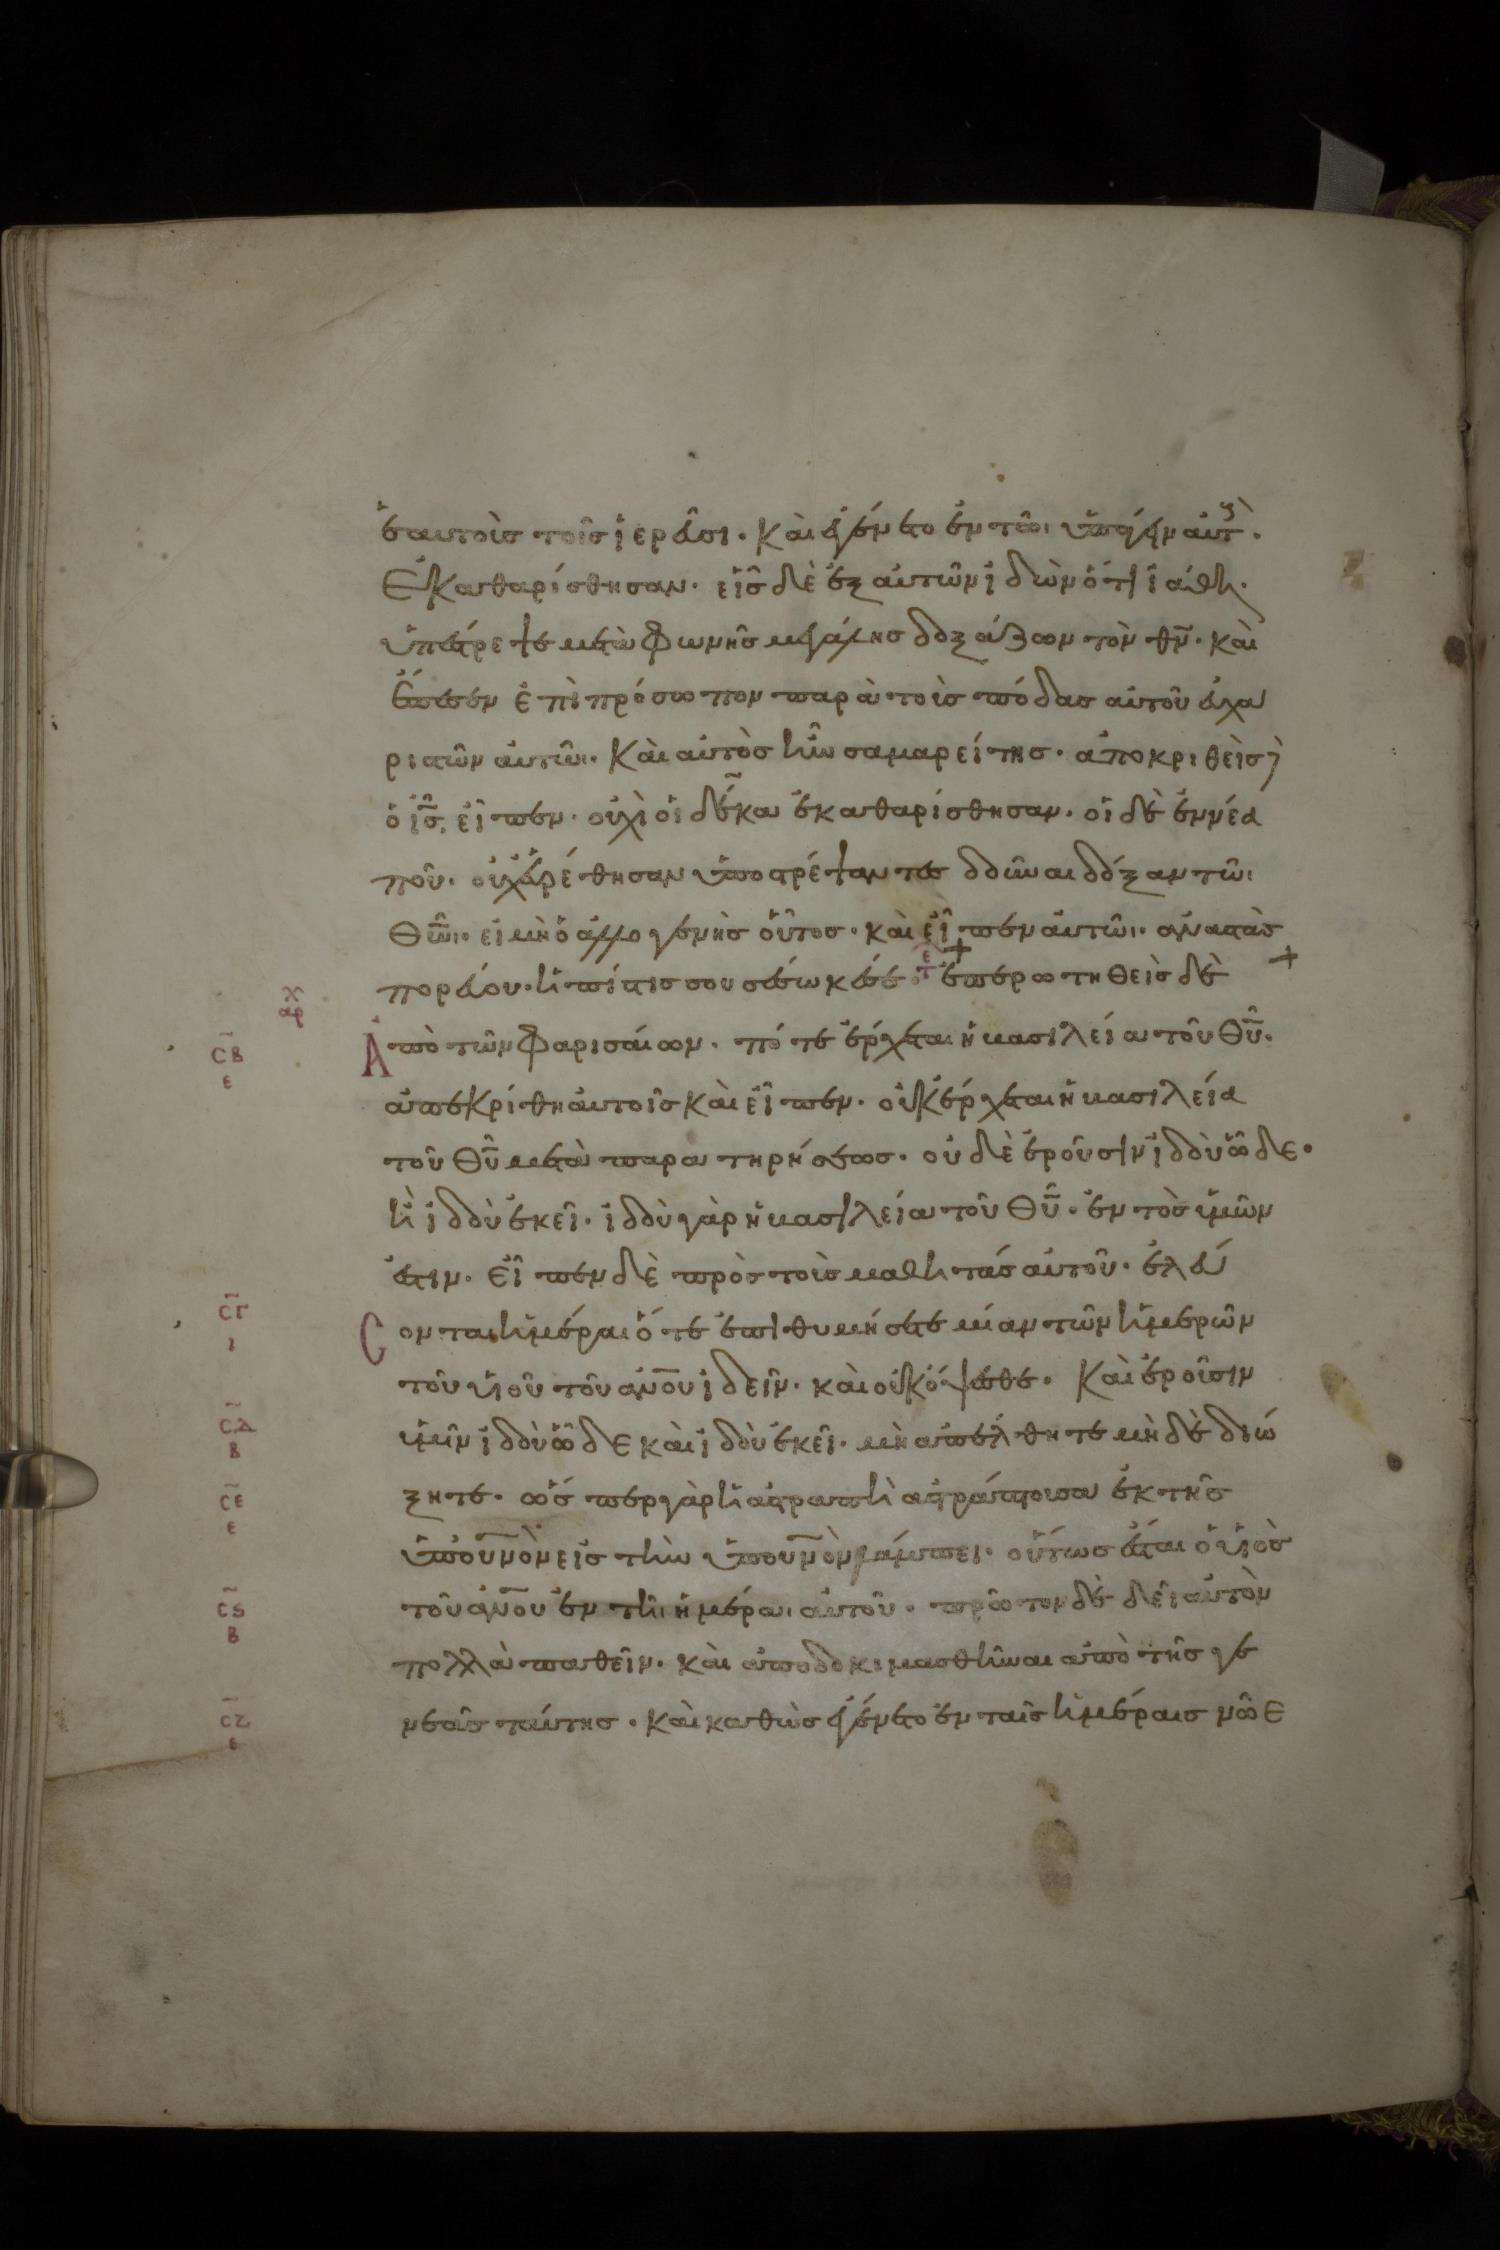 ἑαυτοὺς τοῖς ἱερεῦσι. καὶ ἐγένετο ἐν τῶι ὑπάγειν αὐτοὺς
ἐκαθαρίσθησαν. εἷς δὲ ἐξ αὐτῶν ἰδὼν ὅτι ἰάθη.
ὑπέστρεψε μετὰ φωνῆς μεγάλης δοξάζων τὸν θν. καὶ
ἔπεσεν ἐπὶ πρόσωπον παρὰ τοὺς πόδας αὐτοῦ εὐχα
ριστῶν αὐτῶι. καὶ αὐτὸς ἦν σαμαρείτης. ἀποκριθεὶς δὲ
ὁ ις, εἶπεν. οὐχὶ οἱ δέκα ἐκαθαρίσθησαν. οἱ δὲ ἐννέα
ποῦ. οὐχ εὑρέθησαν ὑποστρέψαντες δοῦναι δόξαν τῶι
θωι. εἰ μὴ ὁ ἀλλογενὴς οὗτος. καὶ εἶπεν αὐτῶι. ἀναστὰς
πορεύου. ἡ πίστις σου σέσωκέ σε. ἐπερωτηθεὶς δὲ
ἀπὸ τῶν φαρισαίων. πότε ἔρχεται ἡ βασιλεία τοῦ θυ.
ἀπεκρίθη αὐτοῖς καὶ εἶπεν. οὐκ ἔρχεται ἡ βασιλεία
τοῦ θυ μετὰ παρατηρήσεως. οὐδὲ ἐροῦσιν ἰδοὺ ὧδε.
ἢ ἰδοὺ ἐκεῖ. ἰδοὺ γὰρ ἡ βασιλεία τοῦ θυ. ἐντὸς ὑμῶν
ἐστιν. εἶπεν δὲ πρὸς τοὺς μαθητάς αὐτοῦ. ἐλεύ
σονται ἡμέραι ὅτε ἐπιθυμήσετε μίαν τῶν ἡμερῶν
τοῦ υἱοῦ τοῦ ανου ἰδεῖν. καὶ οὐκ ὄψεσθε. καὶ ἐροῦσιν
ὑμῖν ἰδοὺ ὧδε καὶ ἰδοὺ ἐκεῖ. μὴ ἀπέλθητε μὴ δὲ διώ
ξητε. ὥσπερ γὰρ ἡ ἀστραπὴ ἀστράπτουσα ἐκ τῆς
ὑπ' ουνὸν εἰς τὴν ὑπ' ουνὸν λάμπει. οὕτως ἔσται ὁ υἱὸς
τοῦ ανου ἐν τῆι ἡμέραι αὐτοῦ. πρῶτον δὲ δεῖ αὐτὸν
πολλὰ παθεῖν. καὶ ἀποδοκιμασθῆναι ἀπὸ τῆς γε
νεᾶς ταύτης. καὶ καθὼς ἐγένετο ἐν ταῖς ἡμέραις νῶε
χ
αρ
σβ
ε
σγ
ι
σδ
β
σε
ε
σς
β
σζ
ε